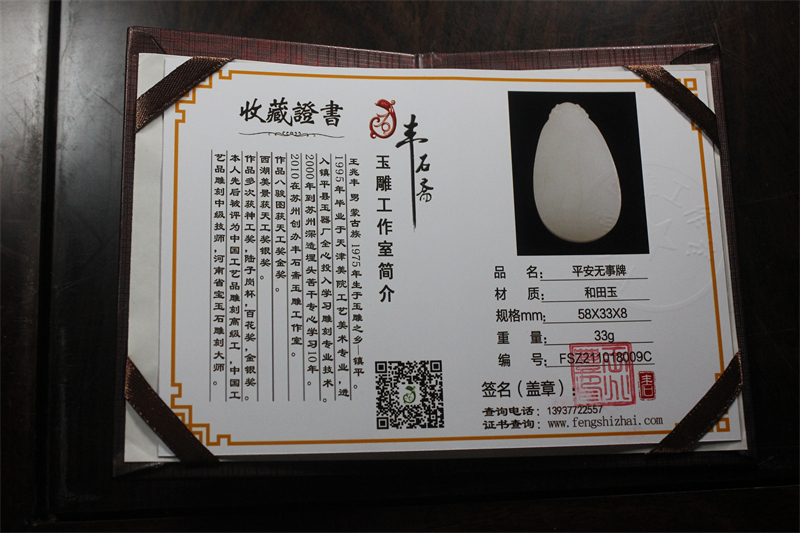 收藏證書
丰石斋
玉雕工作室简介
王兆丰 男 蒙古族 1975年生于玉雕之乡—镇平。
1995年毕业于天津美院工艺美术专业,进
入镇平县玉器厂全心投入学习雕刻专业技术。
2000年到苏州深造埋头苦干专心学习10年。
2010在苏州创办丰石斋玉雕工作室。
作品八骏图获天工奖金奖。
西湖美景获天工奖银奖。
作品多次获神工奖,陆子岗杯,百花奖,金银奖。
本人先后被评为中国工艺品雕刻高级工,中国工
艺品雕刻中级技师,河南省宝玉石雕刻大师。
品 名: 平安无事牌
材 质: 和田玉
规格mm: 58X33X8
重 量: 33g
编 号: FSZ211018009C
签名(盖章):
查询电话: 13937722557
证书查询: www.fengshizhai.com